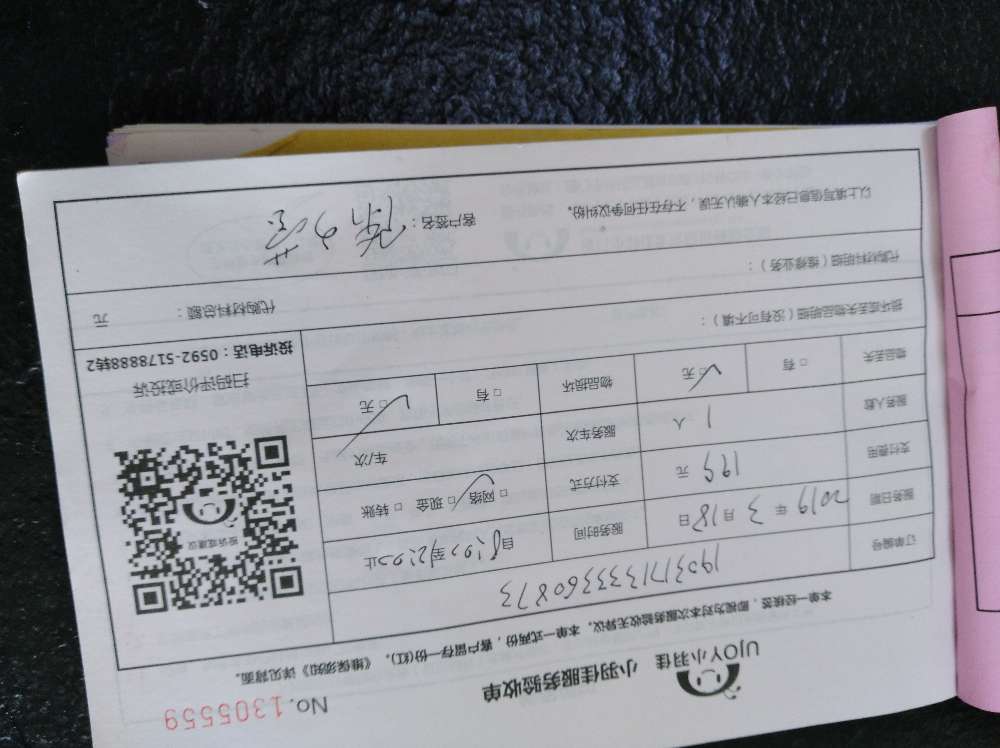 UJOY小羽佳
小羽佳服务验收单
No.1305559
本单一经核签,即视为对本次服务验收无异议。本单一式两份,客户留存一份(红)。《维保须知》详见背面。
订单编号 190317133360873
服务日期 2019年3月18日 服务时间 自8:00至12:00止
支付费用 199元 支付方式 □网络 □现金 □转账
服务人数 1人 服务车次 车/次
物品丢失 □有 □无 物品损坏 □有 □无
投诉或建议
扫码评价或投诉
投诉电话:0592-5178888转2
损坏或丢失物品明细(没有可不填):
代购材料明细(维修业务):
代购材料总额: 元
以上填写信息已经本人确认无误,不存在任何争议纠纷。 客户签名: